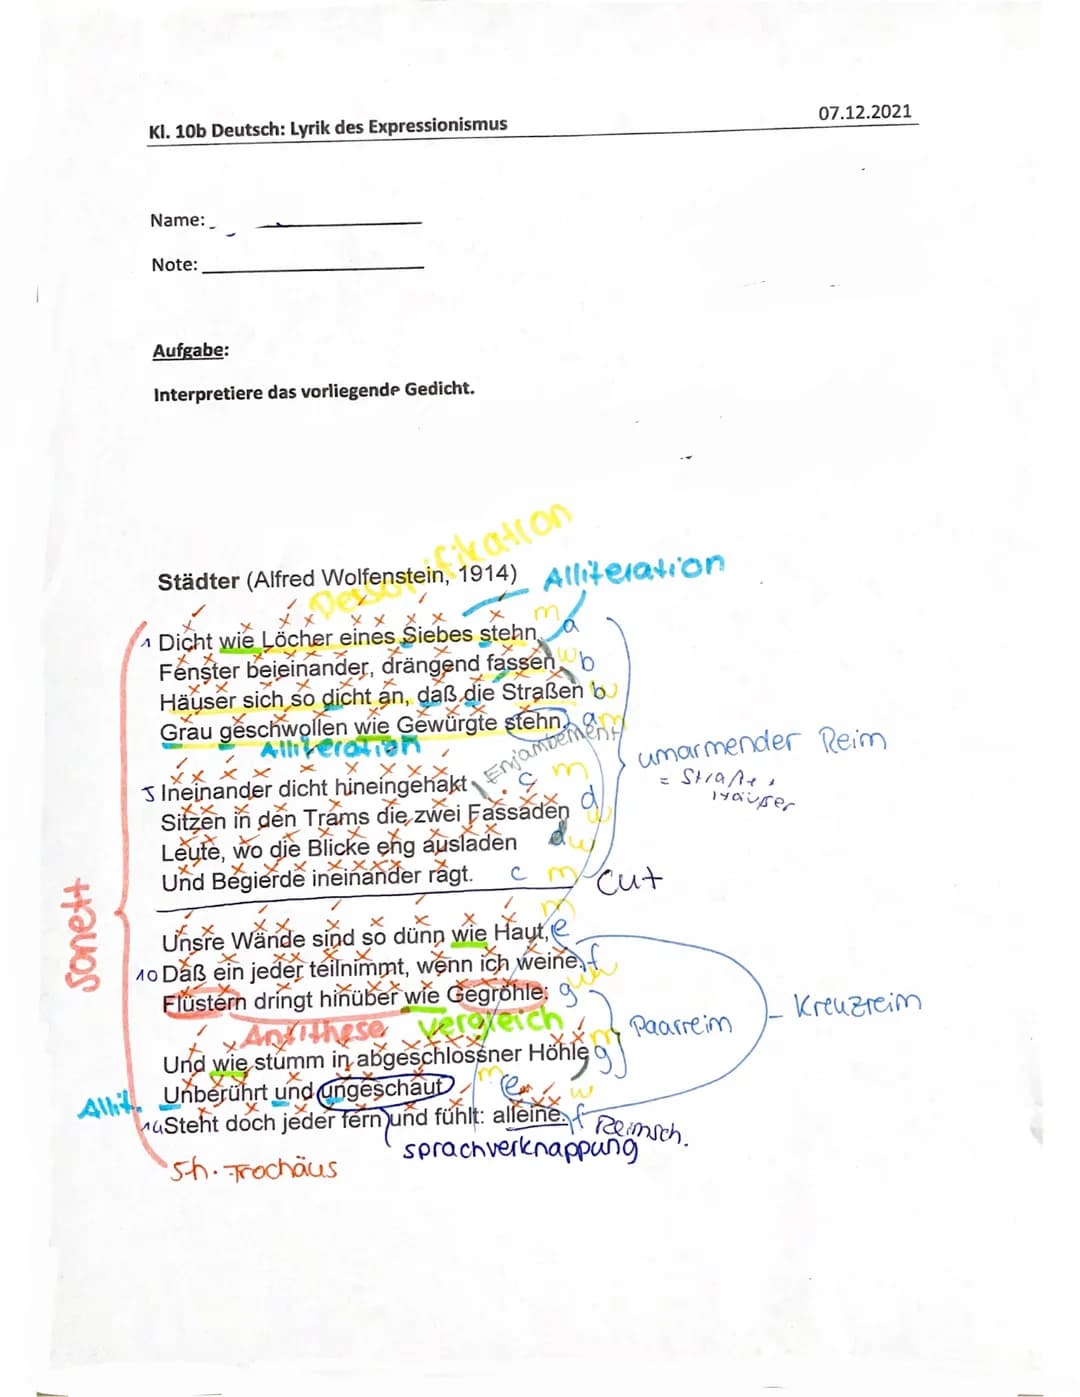 Kl. 10b Deutsch: Lyrik des Expressionismus
07.12.2021
Name:
Note:
Aufgabe:
Interpretiere das vorliegende Gedicht.
Personifikation
Städter (Alfred Wolfenstein, 1914) Alliteration
1 Dicht wie Löcher eines Siebes stehn m a
Fenster beieinander, drängend fassen w b
Häuser sich so dicht an, daß die Straßen b w
Grau geschwollen wie Gewürgte stehn. a m
Alliteration
Enjambement
umarmender Reim
= Straße,
Häuser
5 Ineinander dicht hineingehakt c m
Sitzen in den Trams die zwei Fassaden d w
Leute, wo die Blicke eng ausladen d w
Und Begierde ineinander ragt. c m Cut
Sonett
m
Unsre Wände sind so dünn wie Haut, e
10 Daß ein jeder teilnimmt, wenn ich weine, f w
Flüstern dringt hinüber wie Gegröhle: g w
Antithese Vergleich
Paarreim
Kreuzreim
Und wie stumm in abgeschlossner Höhle g
Allit. Unberührt und ungeschaut m e w
14 Steht doch jeder fern und fühlt: alleine. f Reimsch.
sprachverknappung
5h. Trochäus